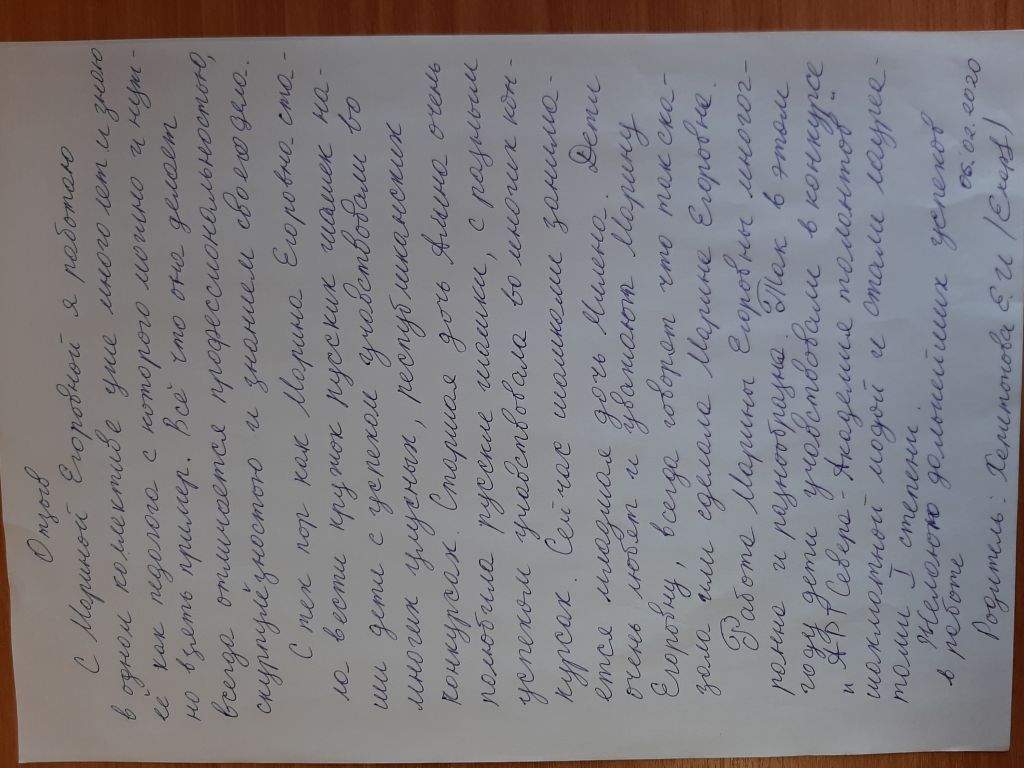 Отзыв
С Мариной Егоровной я работаю
в одном коллективе уже много лет и знаю
её как педагога с которого можно и нуж-
но взять пример. Всё что она делает
всегда отличается профессиональностью,
скурпулёзностью и знанием своего дела.
С тех пор как Марина Егоровна ста-
ла вести кружок русских шашек на-
ши дети с успехом учавствовали во
многих улусных, республиканских
конкурсах. Старшая дочь Алина очень
полюбила руские шашки, с разным
успехом учавствовала во многих кон-
курсах. Сейчас шашками занима-
ется младшая дочь Милена. Дети
очень любят и уважают Марину
Егоровну, всегда говорят что так ска-
зала или сделала Марина Егоровна.
Работа Марины Егоровны многог-
ранна и разнообразна. Так в этом
году дети учавствовали в конкурсе
"Севера - Академия талантов"
шахматной модой и стали лауреа-
тами I степени.
Желаю дальнейших успехов
в работе 06.02.2020
Родитель: Хемионова Е И /Ехем/